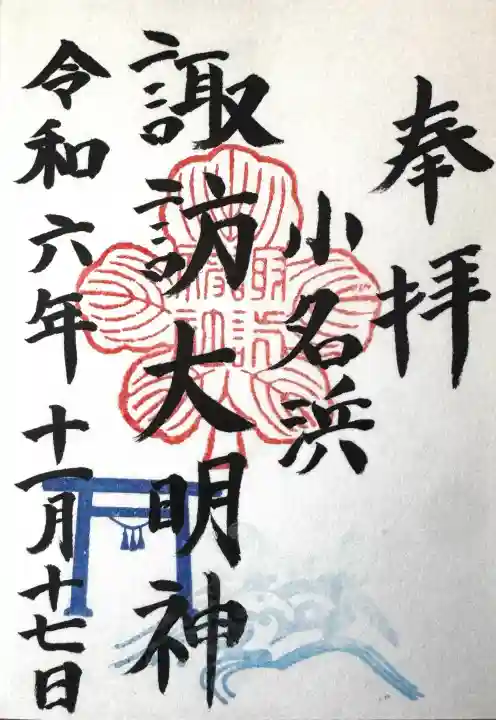 奉拝
小名浜
諏訪大明神
令和六年十一月十七日